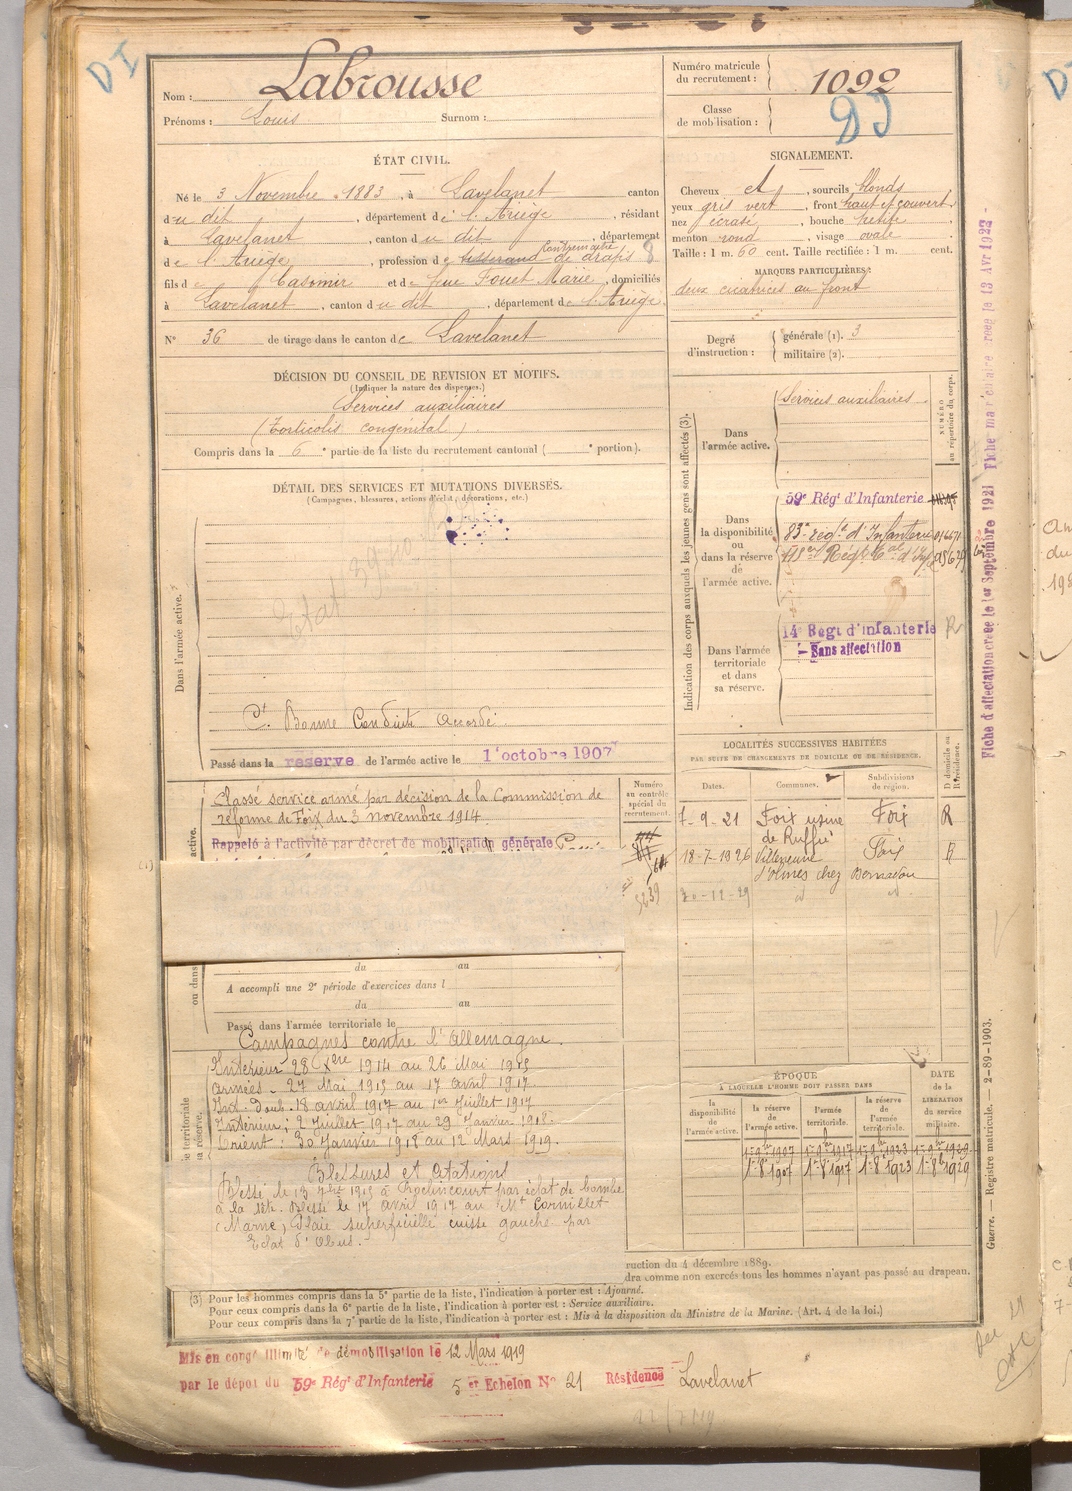 DI
Nom : Labrousse
Prénoms : Louis Surnom :
Numéro matricule du recrutement : 1092
Classe de mobilisation :
DI
ÉTAT CIVIL.
Né le 3 Novembre 1883, à Lavelanet canton
du dit, département de l'Ariège, résidant
à Lavelanet, canton du dit, département
de l'Ariège, profession de tisserand contremaître de draps 8
fils de Casimir et de feue Fouet Marie, domiciliés
à Lavelanet, canton du dit, département de l'Ariège.
N° 36 de tirage dans le canton de Lavelanet
SIGNALEMENT.
Cheveux et, sourcils blonds
yeux gris vert, front haut et couvert,
nez écrasé, bouche petite
menton rond, visage ovale
Taille : 1 m. 60 cent. Taille rectifiée : 1 m. cent.
MARQUES PARTICULIÈRES :
deux cicatrices au front
Degré d'instruction : générale (1). 3
militaire (2).
DÉCISION DU CONSEIL DE REVISION ET MOTIFS.
(Indiquer la nature des dispenses.)
Services auxiliaires
(Torticolis congenital).
Compris dans la 6e partie de la liste du recrutement cantonal ( e portion).
DÉTAIL DES SERVICES ET MUTATIONS DIVERSES.
(Campagnes, blessures, actions d'éclat, décorations, etc.)
Dans l'armée active.
Ct Bonne Conduite accordé
Passé dans la réserve de l'armée active le 1 octobre 1907
Indication des corps auxquels les jeunes gens sont affectés (3).
NUMÉRO au répertoire du corps.
Dans l'armée active.
Services auxiliaires.
Dans la disponibilité ou dans la réserve de l'armée active.
59e Régt d'Infanterie
83e régt d'Infanterie
Dans l'armée territoriale et dans sa réserve.
14e Régt d'Infanterie R
- Sans affectation
Fiche d'affectation créée le 1er Septembre 1921 Fiche matriculaire créée le 13 Avr 1922 -
Classé service armé par décision de la Commission de
réforme de Foix du 3 novembre 1914.
Rappelé à l'activité par décret de mobilisation générale
Numéro au contrôle spécial du recrutement.
LOCALITÉS SUCCESSIVES HABITÉES
PAR SUITE DE CHANGEMENTS DE DOMICILE OU DE RÉSIDENCE.
Dates. Communes. Subdivisions de région. D domicile ou R résidence.
7-9-21 Foix usine de Ruffié Foix R
18-7-1926 Villeneuve d'Olmes chez Bernadou Foix R
30-11-29 d° d°
active.
ou dans
du au
A accompli une 2e période d'exercices dans l
du au
Passé dans l'armée territoriale le
Campagnes contre l'Allemagne.
Intérieur 28 Xbre 1914 au 26 Mai 1915
Armées. 27 Mai 1915 au 17 avril 1917.
Int. doub. 18 avril 1917 au 1er Juillet 1917
Intérieur ; 2 Juillet 1917 au 29 Janvier 1918.
Orient : 30 Janvier 1918 au 12 Mars 1919.
Blessures et Citations
Blessé le 15 7bre 1915 à Roclincourt par éclat de bombe
à la tête. Blessé le 17 avril 1917 au Mt Cornillet
(Marne) Plaie superficielle cuisse gauche par
Eclat d'Obus.
ÉPOQUE
À LAQUELLE L'HOMME DOIT PASSER DANS
DATE de la LIBÉRATION du service militaire.
la disponibilité de l'armée active. la réserve de l'armée active. l'armée territoriale. la réserve de l'armée territoriale.
1-8 1907 1-8 1917 1-8 1923 1-8 1929
ruction du 4 décembre 1889.
dra comme non exercés tous les hommes n'ayant pas passé au drapeau.
(3) Pour les hommes compris dans la 5e partie de la liste, l'indication à porter est : Ajourné.
Pour ceux compris dans la 6e partie de la liste, l'indication à porter est : Service auxiliaire.
Pour ceux compris dans la 7e partie de la liste, l'indication à porter est : Mis à la disposition du Ministre de la Marine. (Art. 4 de la loi.)
Guerre. — Registre matricule. — 2-89-1903.
Mis en congé illimité de démobilisation le 12 Mars 1919
par le dépôt du 59e Régt d'Infanterie 5 er Echelon N° 21 Résidence Lavelanet